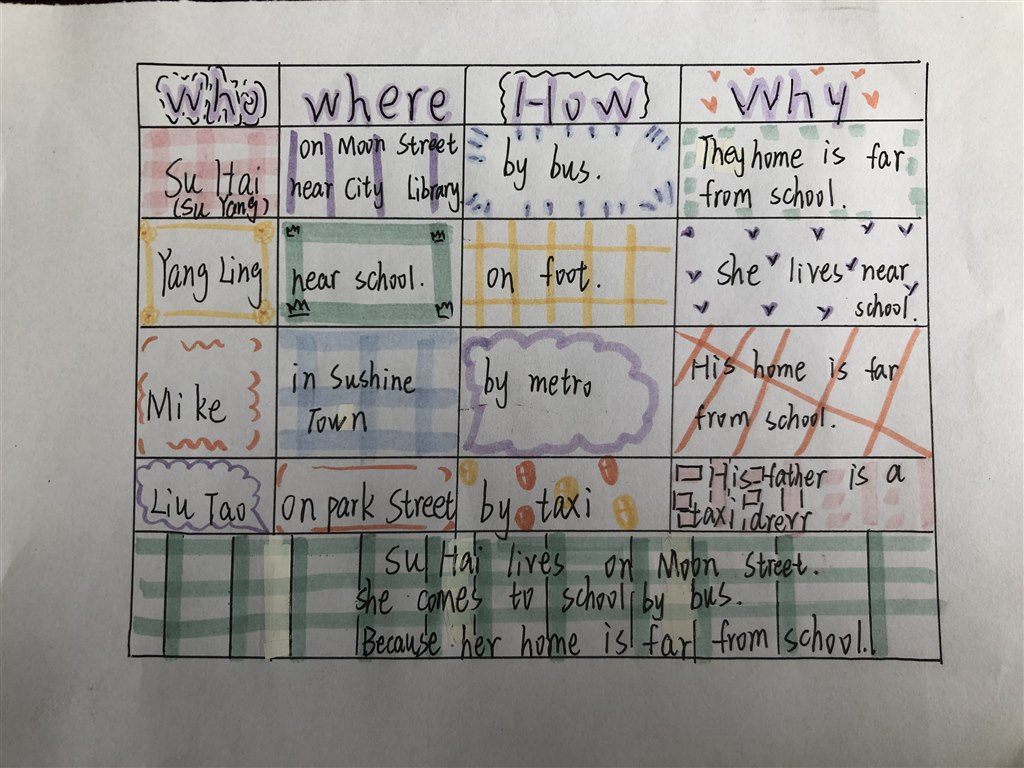 Who where How Why
Su Hai
(Su Yang)
on Moon Street
near City Library
by bus.
They home is far
from school.
Yang Ling
near school.
on foot.
She lives near
school.
Mike
in Sushine
Town
by metro
His home is far
from school.
Liu Tao
on park Street
by taxi
His father is a
taxi drerr
Su Hai lives on Moon Street.
she comes to school by bus.
Because her home is far from school.